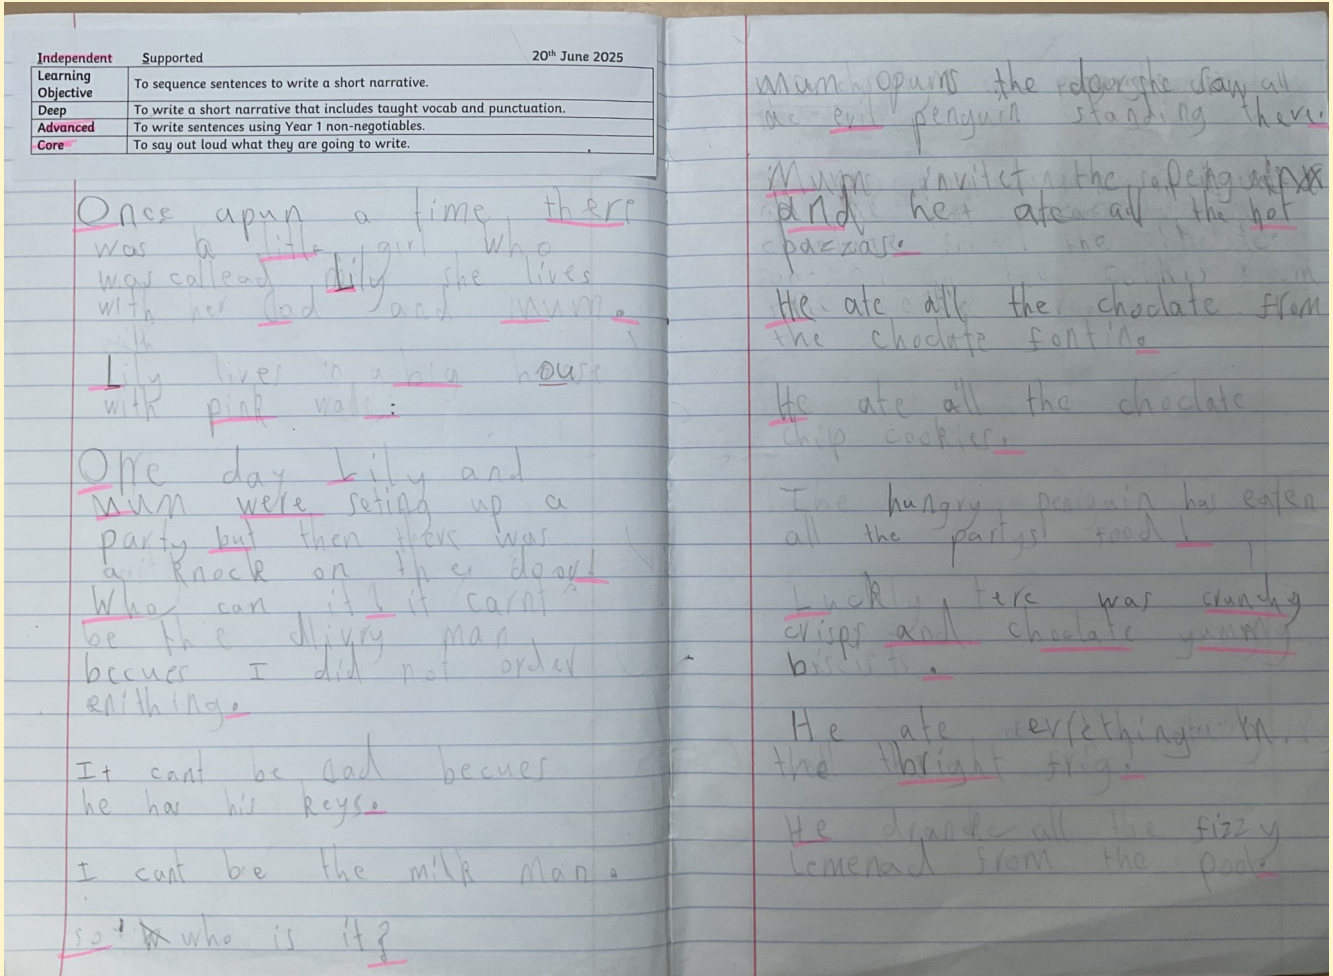 Independent Supported 20th June 2025
Learning Objective To sequence sentences to write a short narrative.
Deep To write a short narrative that includes taught vocab and punctuation.
Advanced To write sentences using Year 1 non-negotiables.
Core To say out loud what they are going to write.
Once apun a time there
was a little girl who
was callead Lily she lives
with her dad and mum.
Lily lives in a big house
with pink walls.
One day Lily and
mum were seting up a
party but then there was
a knock on the door!
Who can it? it carnt
be the dlivry man
becues I did not order
enithing.
It cant be dad becues
he has his keys.
I cant be the milk man.
so who is it?
mum opums the door she saw all
an evil penguin standing there.
Mum invitet the penguin
and he ate all the hot
pazzas.
He ate all the choclate from
the choclate fontin.
He ate all the choclate
chip cookies.
The hungry penguin has eaten
all the partys food!
Luckly tere was crunchy
crisps and choclate yummy
biscists.
He ate everything in
the bright frig.
He drank all the fizzy
lemenad from the pool.